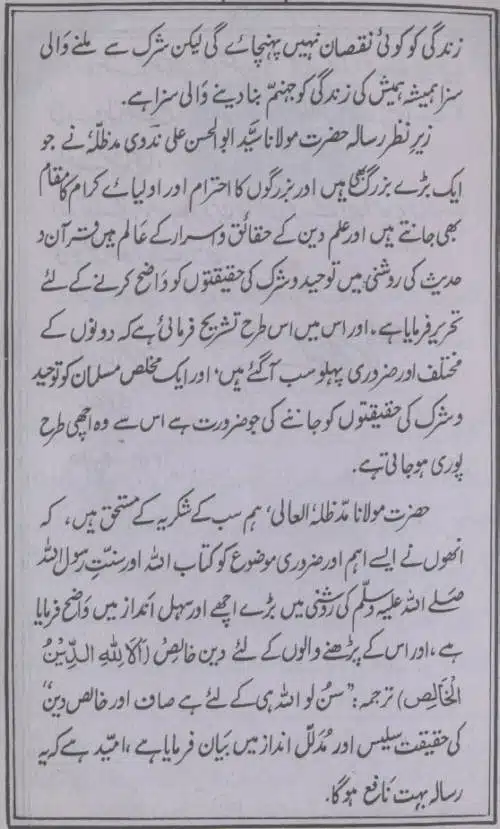 زندگی کو کوئی نقصان نہیں پہنچائے گی لیکن شرک سے ملنے والی
سزا ہمیشہ ہمیش کی زندگی کو جہنم بنا دینے والی سزا ہے.
زیر نظر رسالہ حضرت مولانا سیّد ابوالحسن علی ندوی مدظلّہٗ نے جو
ایک بڑے بزرگ بھی ہیں اور بزرگوں کا احترام اور اولیائے کرام کا مقام
بھی جانتے ہیں اور علم دین کے حقائق و اسرار کے عالم ہیں قرآن و
حدیث کی روشنی میں توحید و شرک کی حقیقتوں کو واضح کرنے کے لئے
تحریر فرمایا ہے، اور اس میں اس طرح تشریح فرمائی ہے کہ دونوں کے
مختلف اور ضروری پہلو سب آگئے ہیں، اور ایک مخلص مسلمان کو توحید
و شرک کی حقیقتوں کو جاننے کی جو ضرورت ہے اس سے وہ اچھی طرح
پوری ہو جاتی ہے.
حضرت مولانا مدّظلہٗ العالی، ہم سب کے شکریہ کے مستحق ہیں، کہ
انھوں نے ایسے اہم اور ضروری موضوع کو کتاب اللہ اور سنّتِ رسول اللہ
صلے اللہ علیہ وسلّم کی روشنی میں بڑے اچھے اور سہل انداز میں واضح فرمایا
ہے، اور اس کے پڑھنے والوں کے لئے دین خالص (اَلَا لِلّٰهِ الدِّيْنُ
الْخَالِص) ترجمہ: ”سن لو اللہ ہی کے لئے ہے صاف اور خالص دین“
کی حقیقت سلیس اور مُدلّل انداز میں بیان فرمایا ہے، امّید ہے کہ یہ
رسالہ بہت نافع ہوگا.